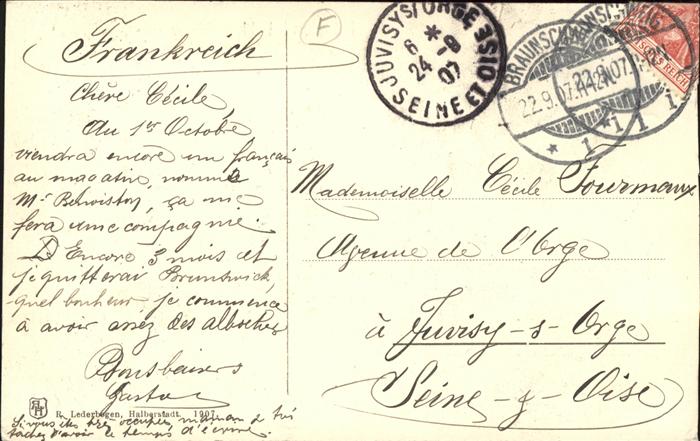 F
JUVISY S/ORGE
6 *
24 - 9
07
SEINE ET OISE
BRAUNSCHWEIG
22.9.07.
* 1 i
BRAUNSCHWEIG
22.9.07.
* 1 i
DEUTSCHES REICH
Frankreich
Chère Cécile,
Au 1er Octobre
viendra encore un français
au magasin, nommé
Mr Benoiston, ça me
fera une compagnie.
Encore 3 mois et
je quitterai Brunswick,
quel bonheur je commence
à avoir assez des alboches
Bons baisers
Gaston
R. Lederbogen, Halberstadt. 1907
Si vous êtes très occupées, maman &
tachez d'avoir le temps d'écrire.
Mademoiselle Cécile Fourmaux
Agence de l'Orge
à Juvisy-s-Orge
Seine-&-Oise